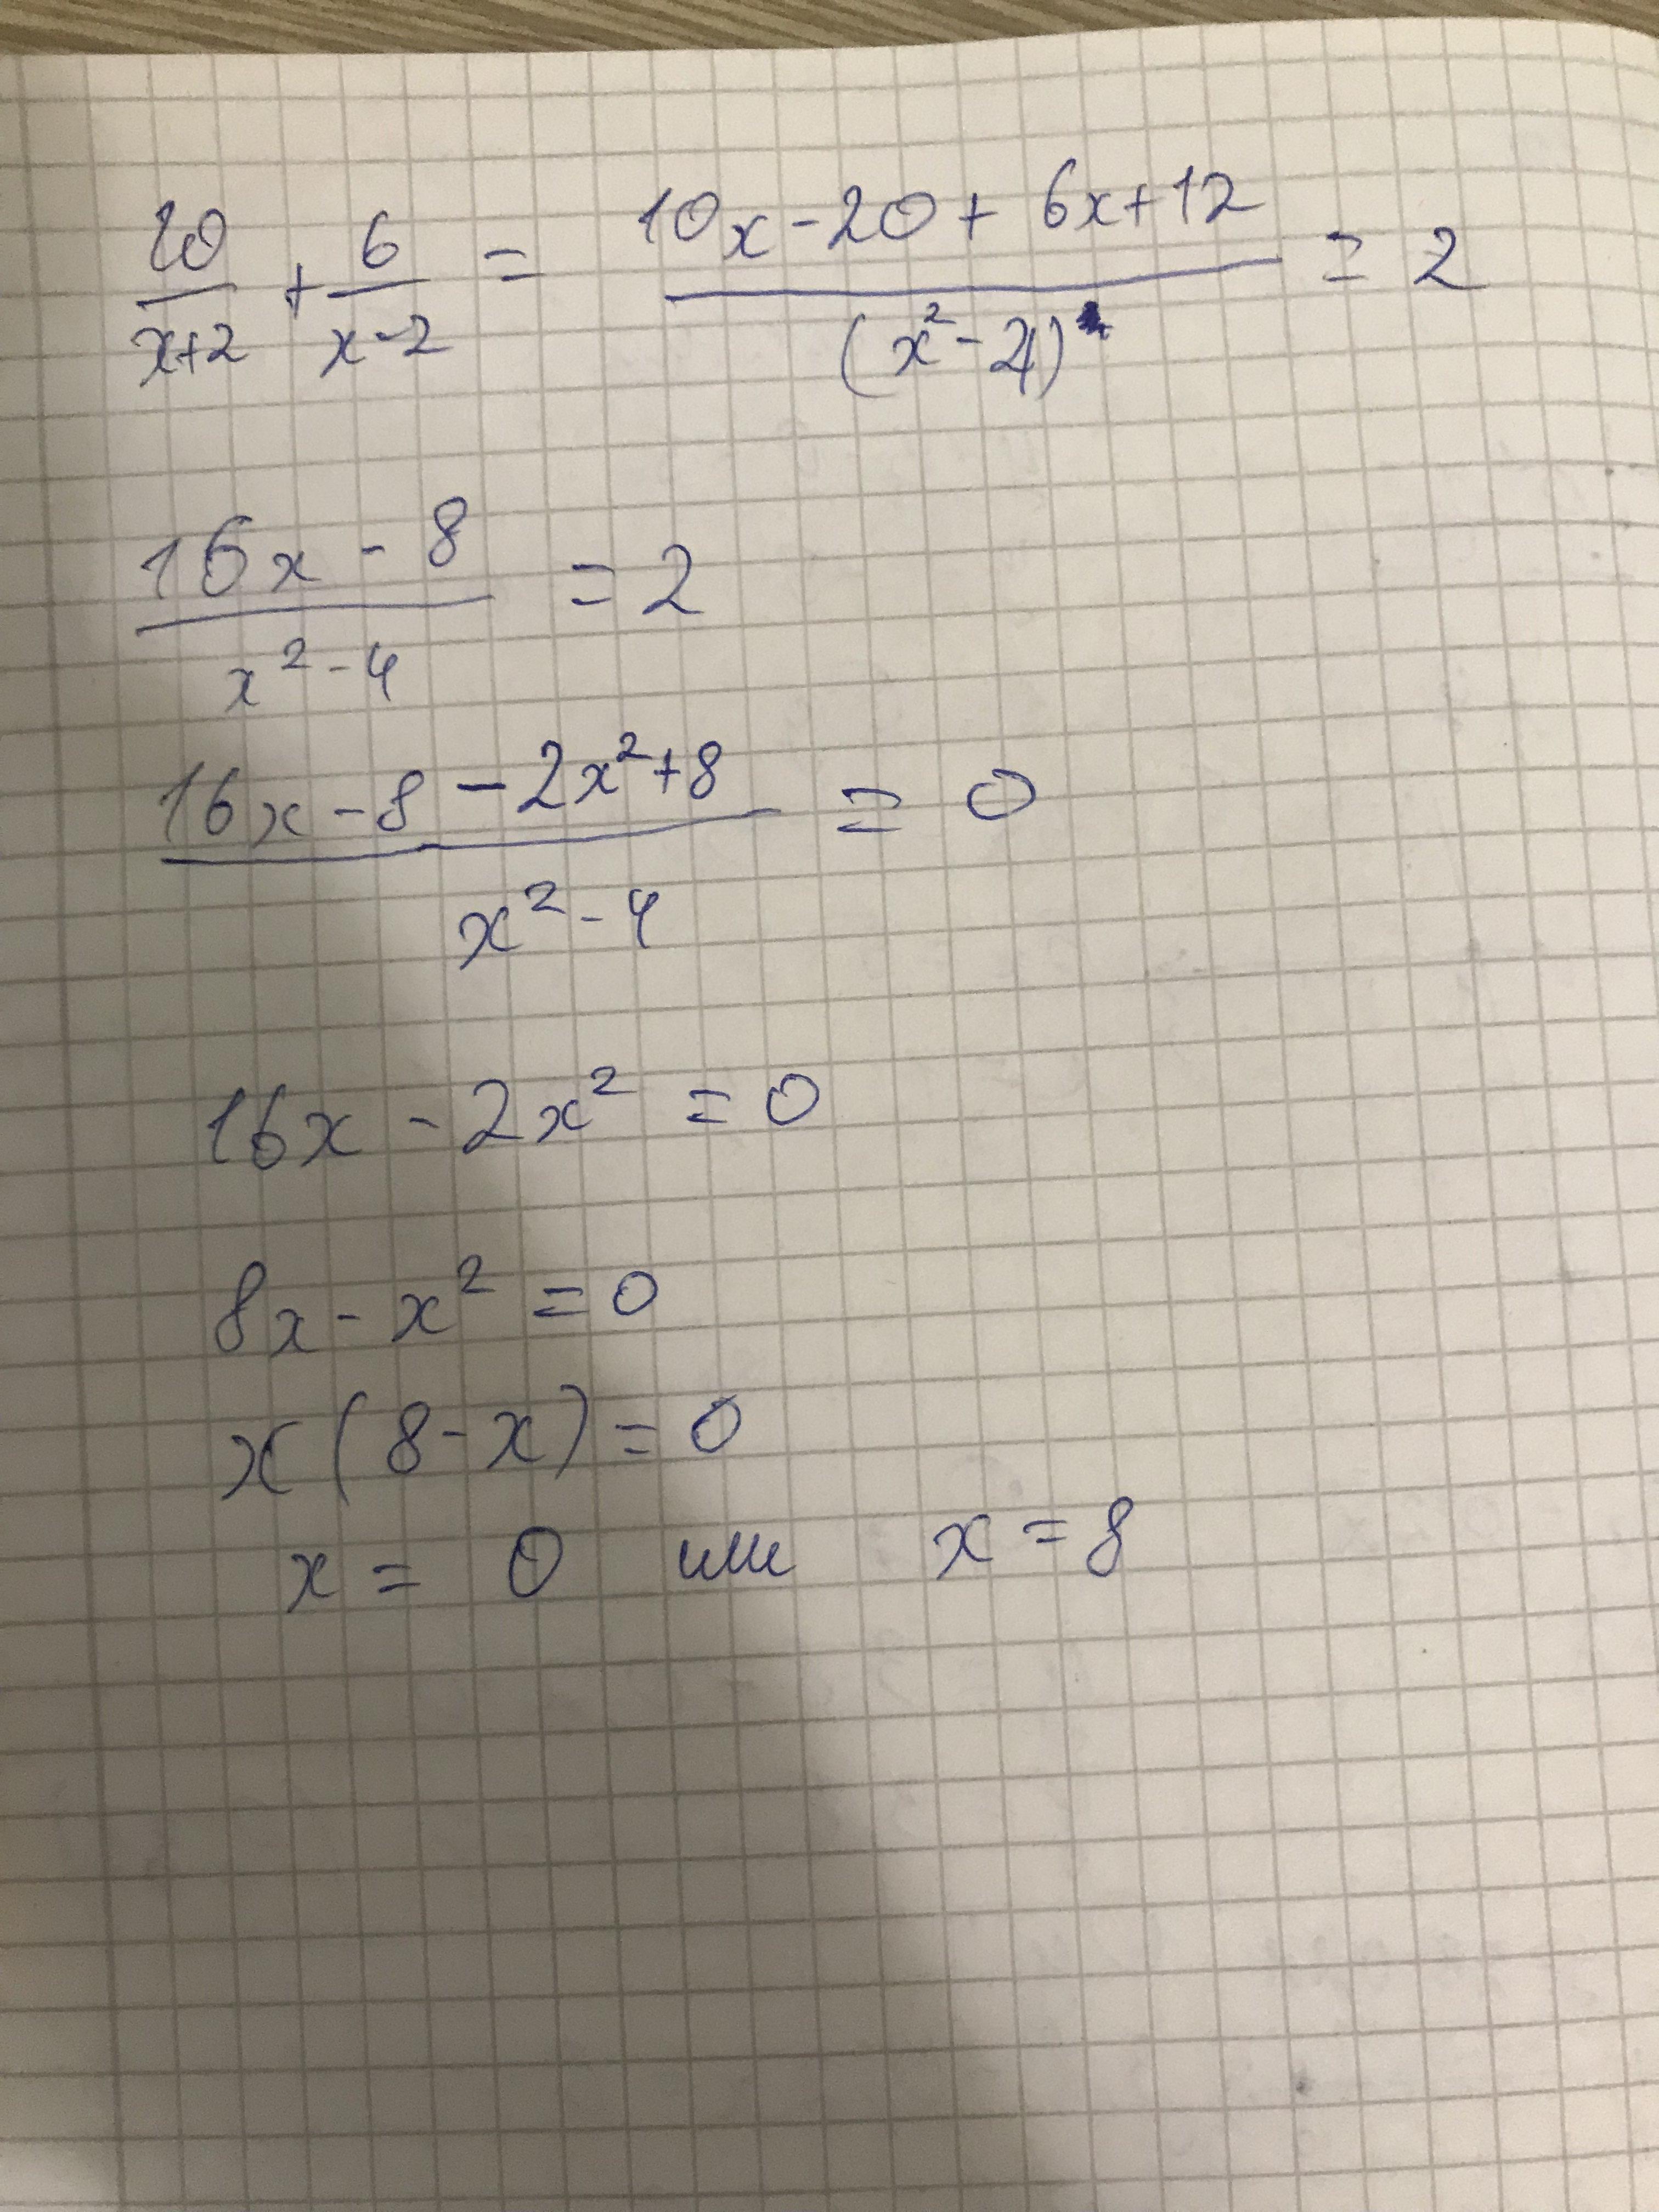 10/(x+2) + 6/(x-2) = (10x-20+6x+12)/(x²-4) = 2
(16x-8)/(x²-4) = 2
(16x-8-2x²+8)/(x²-4) = 0
16x-2x² = 0
8x-x² = 0
x(8-x) = 0
x = 0 или x = 8